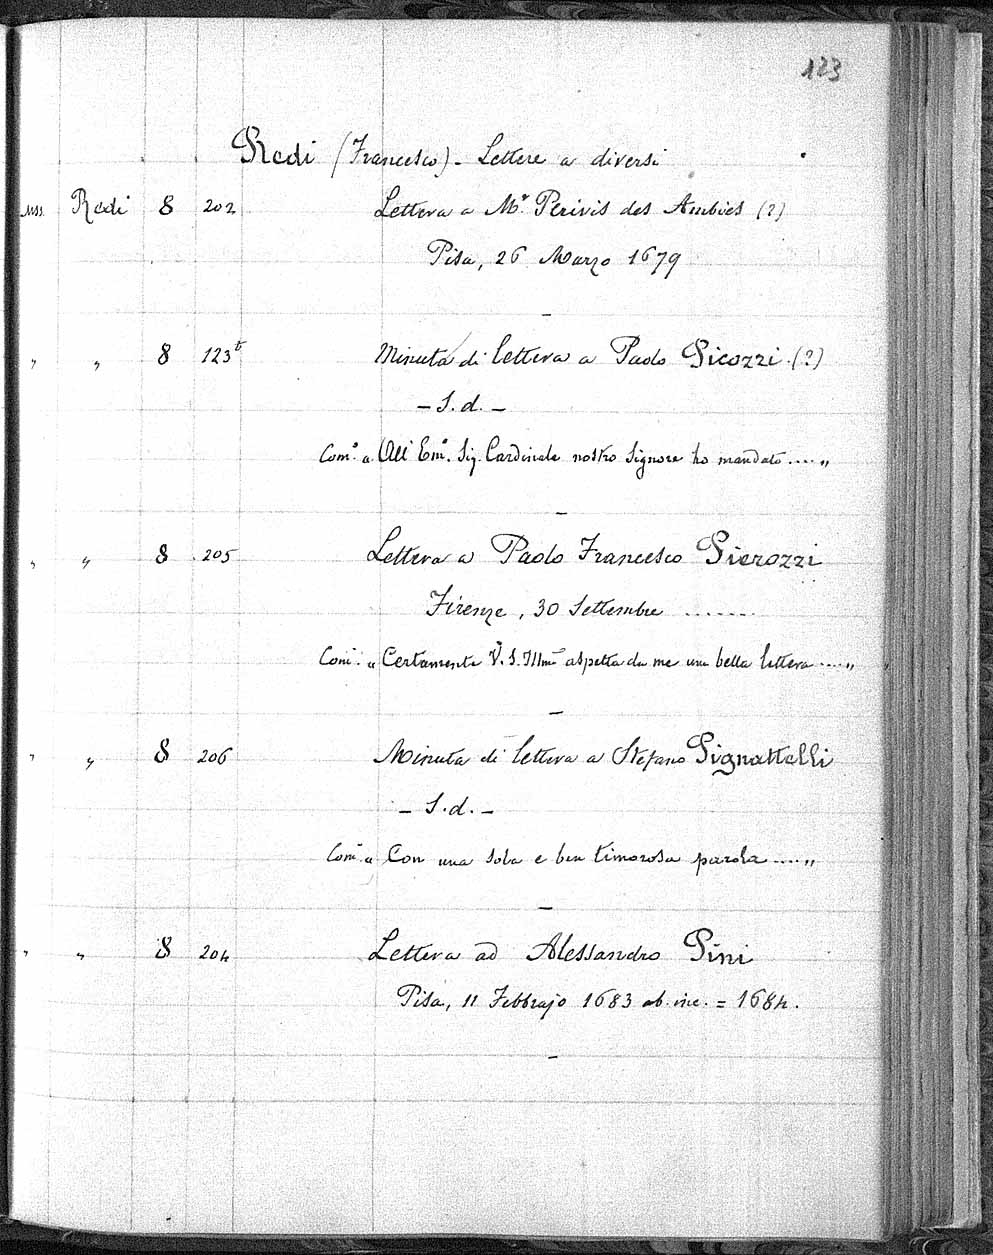 123
Redi (Francesco) - Lettere a diversi
Mss. Redi 8 202 Lettera a Mr. Perivis des Ambies (?)
Pisa, 26 Marzo 1679
" " 8 123t Minuta di lettera a Paolo Picozzi (?)
- S. d. -
Com.a "All' Em.o Sig. Cardinale nostro Signore ho mandato ...."
" " 8 205 Lettera a Paolo Francesco Pierozzi
Firenze, 30 Settembre .......
Com.a "Certamente V. S. Illma aspetta da me una bella lettera ...."
" " 8 206 Minuta di lettera a Stefano Pignattelli
- S. d. -
Com.a "Con una sola e ben timorosa parola ...."
" " 8 204 Lettera ad Alessandro Pini
Pisa, 11 Febbrajo 1683 ab. inc. = 1684.